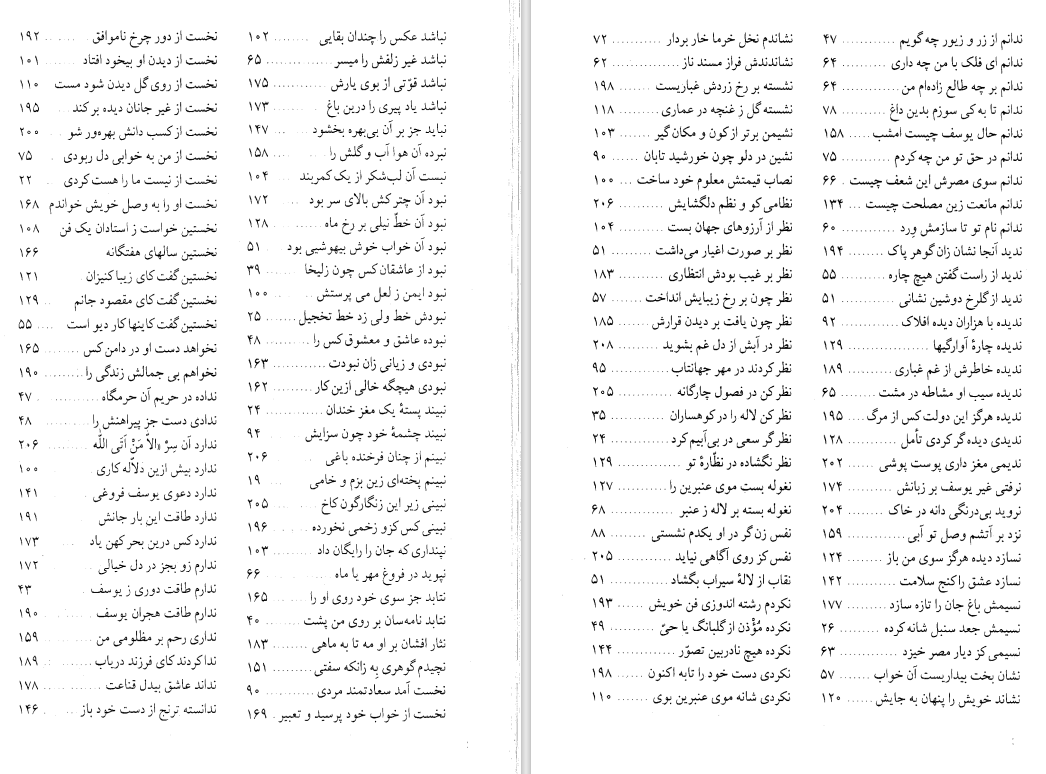 ندانم از زر و زیور چه گویم ........... ۴۷
ندانم ای فلک با من چه داری ......... ۶۴
ندانم بر چه طالع زاده‌ام من ........... ۶۴
ندانم تا به کی سوزم بدین داغ ........ ۷۸
ندانم حال یوسف چیست امشب ..... ۱۵۸
ندانم در حق تو من چه کردم .......... ۷۵
ندانم سوی مصرش این شعف چیست . ۶۶
ندانم مانعت زین مصلحت چیست ... ۱۳۴
ندانم نام تو تا سازمش وِرد ........... ۶۰
ندید آنجا نشان زان گوهر پاک ....... ۱۹۴
ندید از راست گفتن هیچ چاره ........ ۵۵
ندید از گلرخ دوشین نشانی .......... ۵۱
ندیده با هزاران دیده افلاک ........... ۹۲
ندیده چارهٔ آوارگیها ................. ۱۲۹
ندیده خاطرش از غم غباری ......... ۱۸۹
ندیده سیب او مشاطه در مشت ...... ۶۵
ندیده هرگز این دولت کس از مرگ ... ۱۹۵
ندیدی دیده گر کردی تأمل .......... ۱۲۸
ندیمی مغز داری پوست پوشی ...... ۲۰۲
نرفتی غیر یوسف بر زبانش ......... ۱۷۴
نروید بی‌درنگی دانه در خاک ........ ۲۰۴
نزد بر آتشم وصل تو آبی ............ ۱۵۹
نسازد دیده هرگز سوی من باز ....... ۱۲۴
نسازد عشق را کنج سلامت ......... ۱۴۲
نسیمش باغ جان را تازه سازد ........ ۱۷۷
نسیمش جعد سنبل شانه کرده ........ ۲۶
نسیمی کز دیار مصر خیزد ........... ۶۳
نشان بخت بیداریست آن خواب ..... ۵۷
نشاند خویش را پنهان به جایش ...... ۱۲۰
نشاندم نخل خرما خار بردار .......... ۷۲
نشاندندش فراز مسند ناز ............. ۶۲
نشسته بر رخ زردش غباریست ...... ۱۹۸
نشسته گل ز غنچه در عماری ........ ۱۱۸
نشیمن برتر از کون و مکان گیر ...... ۱۰۳
نشین در دلو چون خورشید تابان ..... ۹۰
نصاب قیمتش معلوم خود ساخت ... ۱۰۰
نظامی کو و نظم دلگشایش ......... ۲۰۶
نظر از آرزوهای جهان بست ......... ۱۰۴
نظر بر صورت اغیار می‌داشت ....... ۵۱
نظر بر غیب بودش انتظاری ......... ۱۸۳
نظر چون بر رخ زیبایش انداخت ..... ۵۷
نظر چون یافت بر دیدن قرارش ...... ۱۸۵
نظر در آبش از دل غم بشوید ........ ۲۰۸
نظر کردند در مهر جهانتاب ........... ۹۵
نظر کن در فصول چارگانه .......... ۲۰۵
نظر کن لاله را در کوهساران ........ ۳۵
نظر گر سعی در بی‌آبیم کرد .......... ۲۴
نظر نگشاده در نظّارهٔ تو ............ ۱۲۹
نغوله بست موی عنبرین را .......... ۱۲۷
نغوله بسته بر لاله ز عنبر ............ ۶۸
نفس زن گر در او یکدم نشستی ...... ۸۸
نفس کز روی آگاهی نیاید .......... ۲۰۵
نقاب از لالهٔ سیراب بگشاد .......... ۵۱
نکردم رشته اندوزی فن خویش ..... ۱۹۳
نکرده مُؤْذن از گلبانگ یا حیّ ........ ۴۹
نکرده هیچ نادربین تصوّر ........... ۱۴۴
نکردی دست خود را تا به اکنون ..... ۱۹۸
نکردی شانه موی عنبرین بوی ...... ۱۱۰
نباشد عکس را چندان بقایی ........ ۱۰۲
نباشد غیر زلفش را میسر ............. ۶۵
نباشد قوّتی از بوی یارش ............ ۱۷۵
نباشد یاد پیری را درین باغ .......... ۱۷۳
نباید جز بر آن بی‌بهره بخشود ....... ۱۴۷
نبرده آن هوا آب و گلش را .......... ۱۵۸
نبست آن لب‌شکر از یک کمربند ..... ۱۰۴
نبود آن چتر کش بالای سر بود ....... ۱۷۲
نبود آن خطّ نیلی بر رخ ماه .......... ۱۲۸
نبود آن خواب خوش بیهوشیی بود . ۵۱
نبود از عاشقان کس چون زلیخا ...... ۳۹
نبود ایمن ز لعل می پرستش ......... ۱۰۰
نبودش خط ولی زد خط تخجیل ...... ۲۵
نبوده عاشق و معشوق کس را ........ ۴۸
نبودی و زیانی زان نبودت .......... ۱۶۳
نبودی هیچگه خالی ازین کار ........ ۱۶۲
نبیند پستهٔ یک مغز خندان .......... ۲۴
نبیند چشمهٔ خود چون سزایش ....... ۹۴
نبینم از چنان فرخنده باغی ......... ۲۰۶
نبینم پخته‌ای زین بزم و خامی ....... ۱۹
نبینی زیر این زنگارگون کاخ ........ ۲۰۵
نبینی کس کزو زخمی نخورده ....... ۱۹۶
نپنداری که جان را رایگان داد ........ ۱۰۳
نپوید در فروغ مهر یا ماه ............. ۶۶
نتابد جز سوی خود روی او را ....... ۱۶۵
نتابد نامه‌سان بر روی من پشت ....... ۴۰
نثار افشان بر او مه تا به ماهی ....... ۱۸۳
نچیدم گوهری به زانکه سفتی ........ ۱۵۱
نخست آمد سعادتمند مردی .......... ۹۰
نخست از خواب خود پرسید و تعبیر . ۱۶۹
نخست از دور چرخ ناموافق ........ ۱۹۲
نخست از دیدن او بیخود افتاد ....... ۱۰۱
نخست از روی گل دیدن شود مست . ۱۱۰
نخست از غیر جانان دیده بر کند ..... ۱۹۵
نخست از کسب دانش بهره‌ور شو ... ۲۰۰
نخست از من به خوابی دل ربودی ... ۷۵
نخست از نیست ما را هست کردی ... ۲۲
نخست او را به وصل خویش خواندم ۱۶۸
نخستین خواست ز استادان یک فن . ۱۰۸
نخستین سالهای هفتگانه ........... ۱۶۶
نخستین گفت کای زیبا کنیزان ....... ۱۲۱
نخستین گفت کای مقصود جانم ..... ۱۲۹
نخستین گفت کاینها کار دیو است .... ۵۵
نخواهد دست او در دامن کس ....... ۱۶۵
نخواهم بی جمالش زندگی را ........ ۱۹۰
نداده در حریم آن حرمگاه ........... ۴۷
ندادی دست جز پیراهنش را ......... ۴۸
ندارد آن سِرّ «الاّ مَنْ اَتَی اللّه ......... ۲۰۶
ندارد بیش ازین دلاّله کاری ......... ۱۰۰
ندارد دعوی یوسف فروغی ........ ۱۴۱
ندارد طاقت این بار جانش ......... ۱۹۱
ندارد کس درین بحر کهن یاد ....... ۱۷۳
ندارم رو بجز در دل خیالی ......... ۱۷۲
ندارم طاقت دوری ز یوسف ......... ۴۳
ندارم طاقت هجران یوسف ......... ۱۹۰
نداری رحم بر مظلومی من ......... ۱۵۹
ندا کردند کای فرزند دریاب ........ ۱۸۹
نداند عاشق بیدل قناعت ........... ۱۷۸
ندانسته ترنج از دست خود باز ...... ۱۴۶